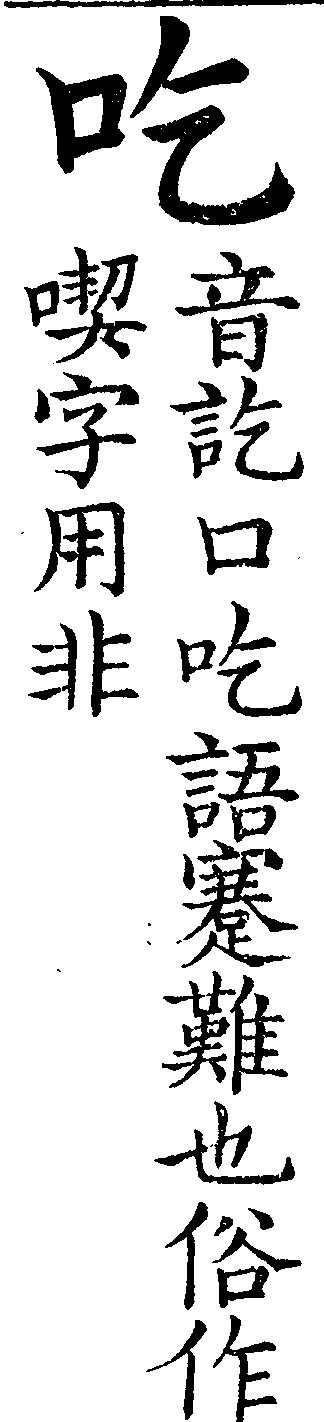 吃
音訖口吃語蹇難也俗作
喫字用非